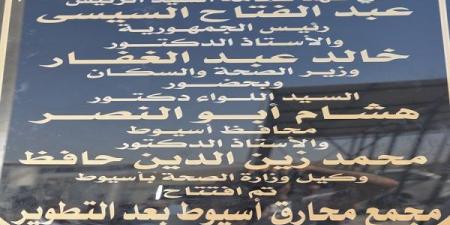 عبد الفتاح السيسى
رئيس الجمهورية
والأستاذ الدكتور
خالد عبد الغفار
وزير الصحة والسكان
وبحضور
السيد اللواء دكتور
هشام أبو النصر
محافظ أسيوط
والأستاذ الدكتور
محمد زين الدين حافظ
وكيل وزارة الصحة بأسيوط
تم افتتاح/
مجمع محارق أسيوط بعد التطوير